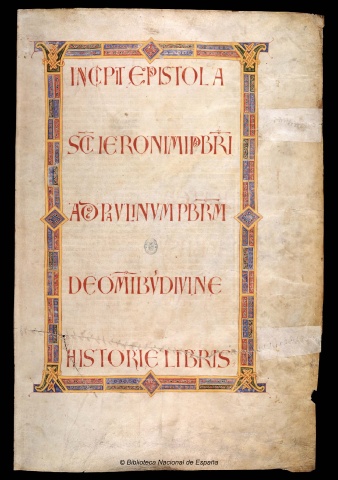 INCIPIT EPISTOLA
SCI IERONIMI PBRI
AD PAULINUM PBRM
DE OMIBUS DIVINE
HISTORIE LIBRIS
© Biblioteca Nacional de España